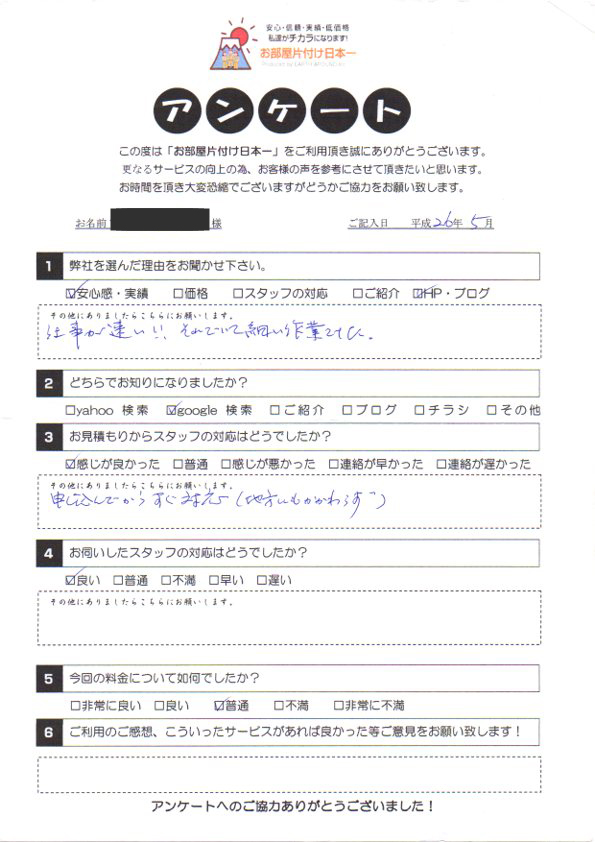 安心・信頼・実績・低価格
私達がチカラになります!
お部屋片付け日本一
アンケート
この度は「お部屋片付け日本一」をご利用頂き誠にありがとうございます。
更なるサービスの向上の為、お客様の声を参考にさせて頂きたいと思います。
お時間を頂き大変恐縮でございますがどうかご協力をお願い致します。
お名前 様 ご記入日 平成26年5月
1 弊社を選んだ理由をお聞かせ下さい。
☑安心感・実績 □価格 □スタッフの対応 □ご紹介 ☑HP・ブログ
その他にありましたらこちらにお願いします。
仕事が速い!! それでいて細い作業でした。
2 どちらでお知りになりましたか?
□yahoo 検索 ☑google 検索 □ご紹介 □ブログ □チラシ □その他
3 お見積もりからスタッフの対応はどうでしたか?
☑感じが良かった □普通 □感じが悪かった □連絡が早かった □連絡が遅かった
その他にありましたらこちらにお願いします。
申し込んでからすぐ対応(地方にもかかわらず)
4 お伺いしたスタッフの対応はどうでしたか?
☑良い □普通 □不満 □早い □遅い
その他にありましたらこちらにお願いします。
5 今回の料金について如何でしたか?
□非常に良い □良い ☑普通 □不満 □非常に不満
6 ご利用のご感想、こういったサービスがあれば良かった等ご意見をお願い致します!
アンケートへのご協力ありがとうございました!